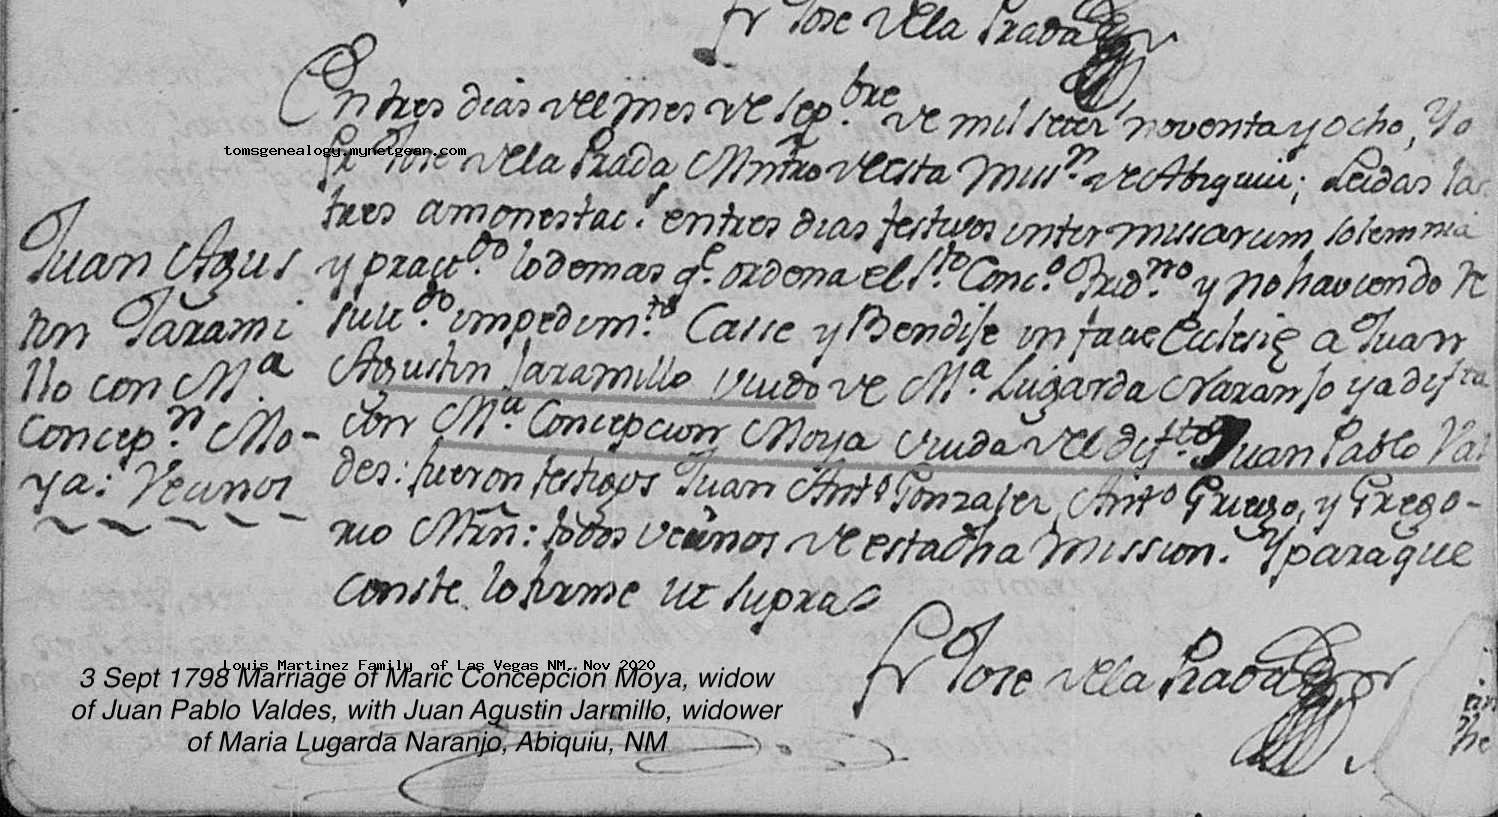 fr Jose Vela Prada
En tres dias del mes de Sep.bre de mil setec.s noventa y ocho, Yo
tomsgenealogy.mynetgear.com
fr Jose Vela Prada Mntro de esta Miss.n de Abiquiu; Leidas las
tres amonestac.s en tres dias festivos inter missarum solemnia
y pract.do lo demas q.e ordena el S.to Conc.o Trid.no y no haviendo re
sult.do impedim.to Casse y Bendise in facie Eclesię a Juan
Agustin Jaramillo viudo de M.a Lugarda Naranjo ya dif.ta
con M.a Concepcion Moya viuda del dif.to Juan Pablo Val
des: fueron testigos Juan Ant.o Gonzales, Ant.o Griego, y Grego-
rio Mrñ: todos vecinos de esta dha Mission. Y para que
conste lo firme ut supra
Juan Agus
tin Jarami
llo con M.a
Concep.n Mo-
ya: Vecinos
fr Jose Vela Prada
Louis Martinez Family of Las Vegas NM, Nov 2020
3 Sept 1798 Marriage of Maric Concepcion Moya, widow
of Juan Pablo Valdes, with Juan Agustin Jarmillo, widower
of Maria Lugarda Naranjo, Abiquiu, NM